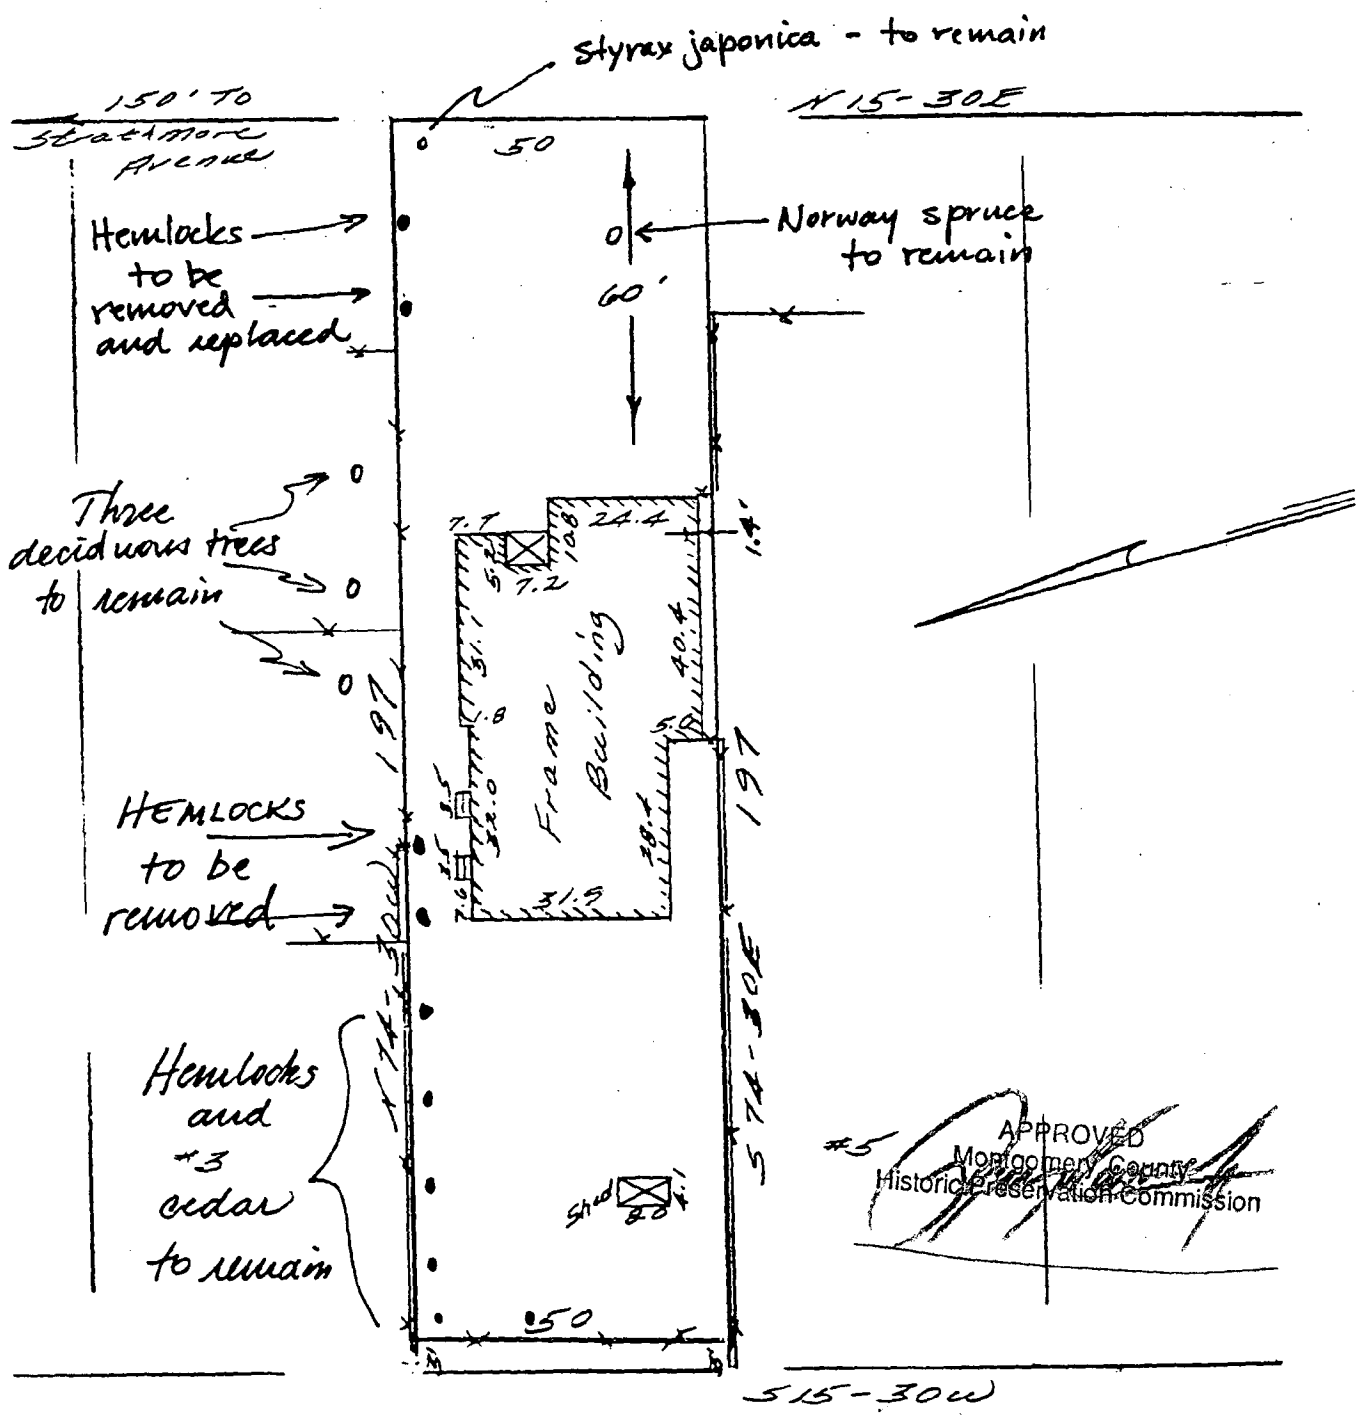 Styrax japonica - to remain
150' To
Strathmore
Avenue
N 15-30E
50
Hemlocks
to be
removed
and replaced
Norway spruce
to remain
60'
Three
deciduous trees
to remain
7.7
5.2
7.2
10.8
24.4
1.4'
31.1
40.4
.8
5.0
Frame
Building
197
197
HEMLOCKS
to be
removed
3.5
3.5
32.0
28.4
7.6
31.5
N 74-30W
S 74-30E
Hemlocks
and
#3
cedar
to remain
Shed
8.0
4.1
#5
APPROVED
Montgomery County
Historic Preservation Commission
50
S15-30W